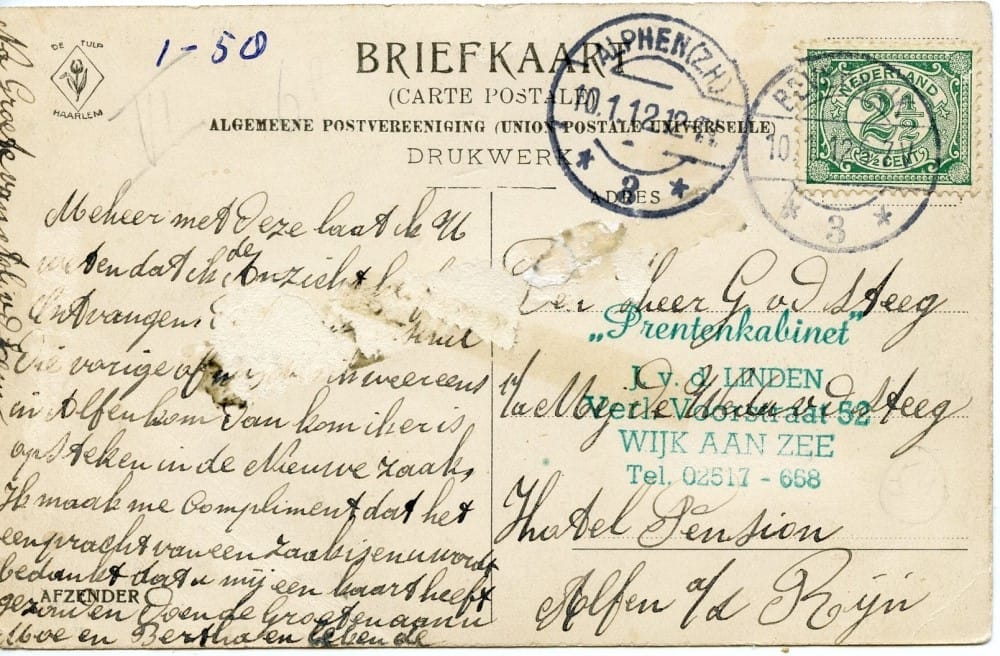 DE TULP
HAARLEM
1-50
BRIEFKAART
(CARTE POSTALE)
ALGEMEENE POSTVEREENIGING (UNION POSTALE UNIVERSELLE)
DRUKWERK
ALPHEN (Z.H.)
10.1.12.12
3
10
3
NEDERLAND
2½
2½ CENT
ADRES
Meheer met deze laat ik U
weten dat ik de Anzicht
Ontvangen
Die vorige of weer eens
in Alfen kom dan kom ik er is
opsteken in de Nieuwe Zaak
Ik maak me Compliment dat het
een pracht van een Zaak is en u wordt
bedankt dat u mij een kaart heeft
gezonden Doe de Groeten aan u
Moe en Bertha en
AFZENDER
De Groete van
heer G. v d Steeg
Weduwe v d Steeg
Hotel Pension
Alfen a/d Rijn
„Prentenkabinet”
J. v. d. LINDEN
Verl. Voorstraat 52
WIJK AAN ZEE
Tel. 02517 - 668